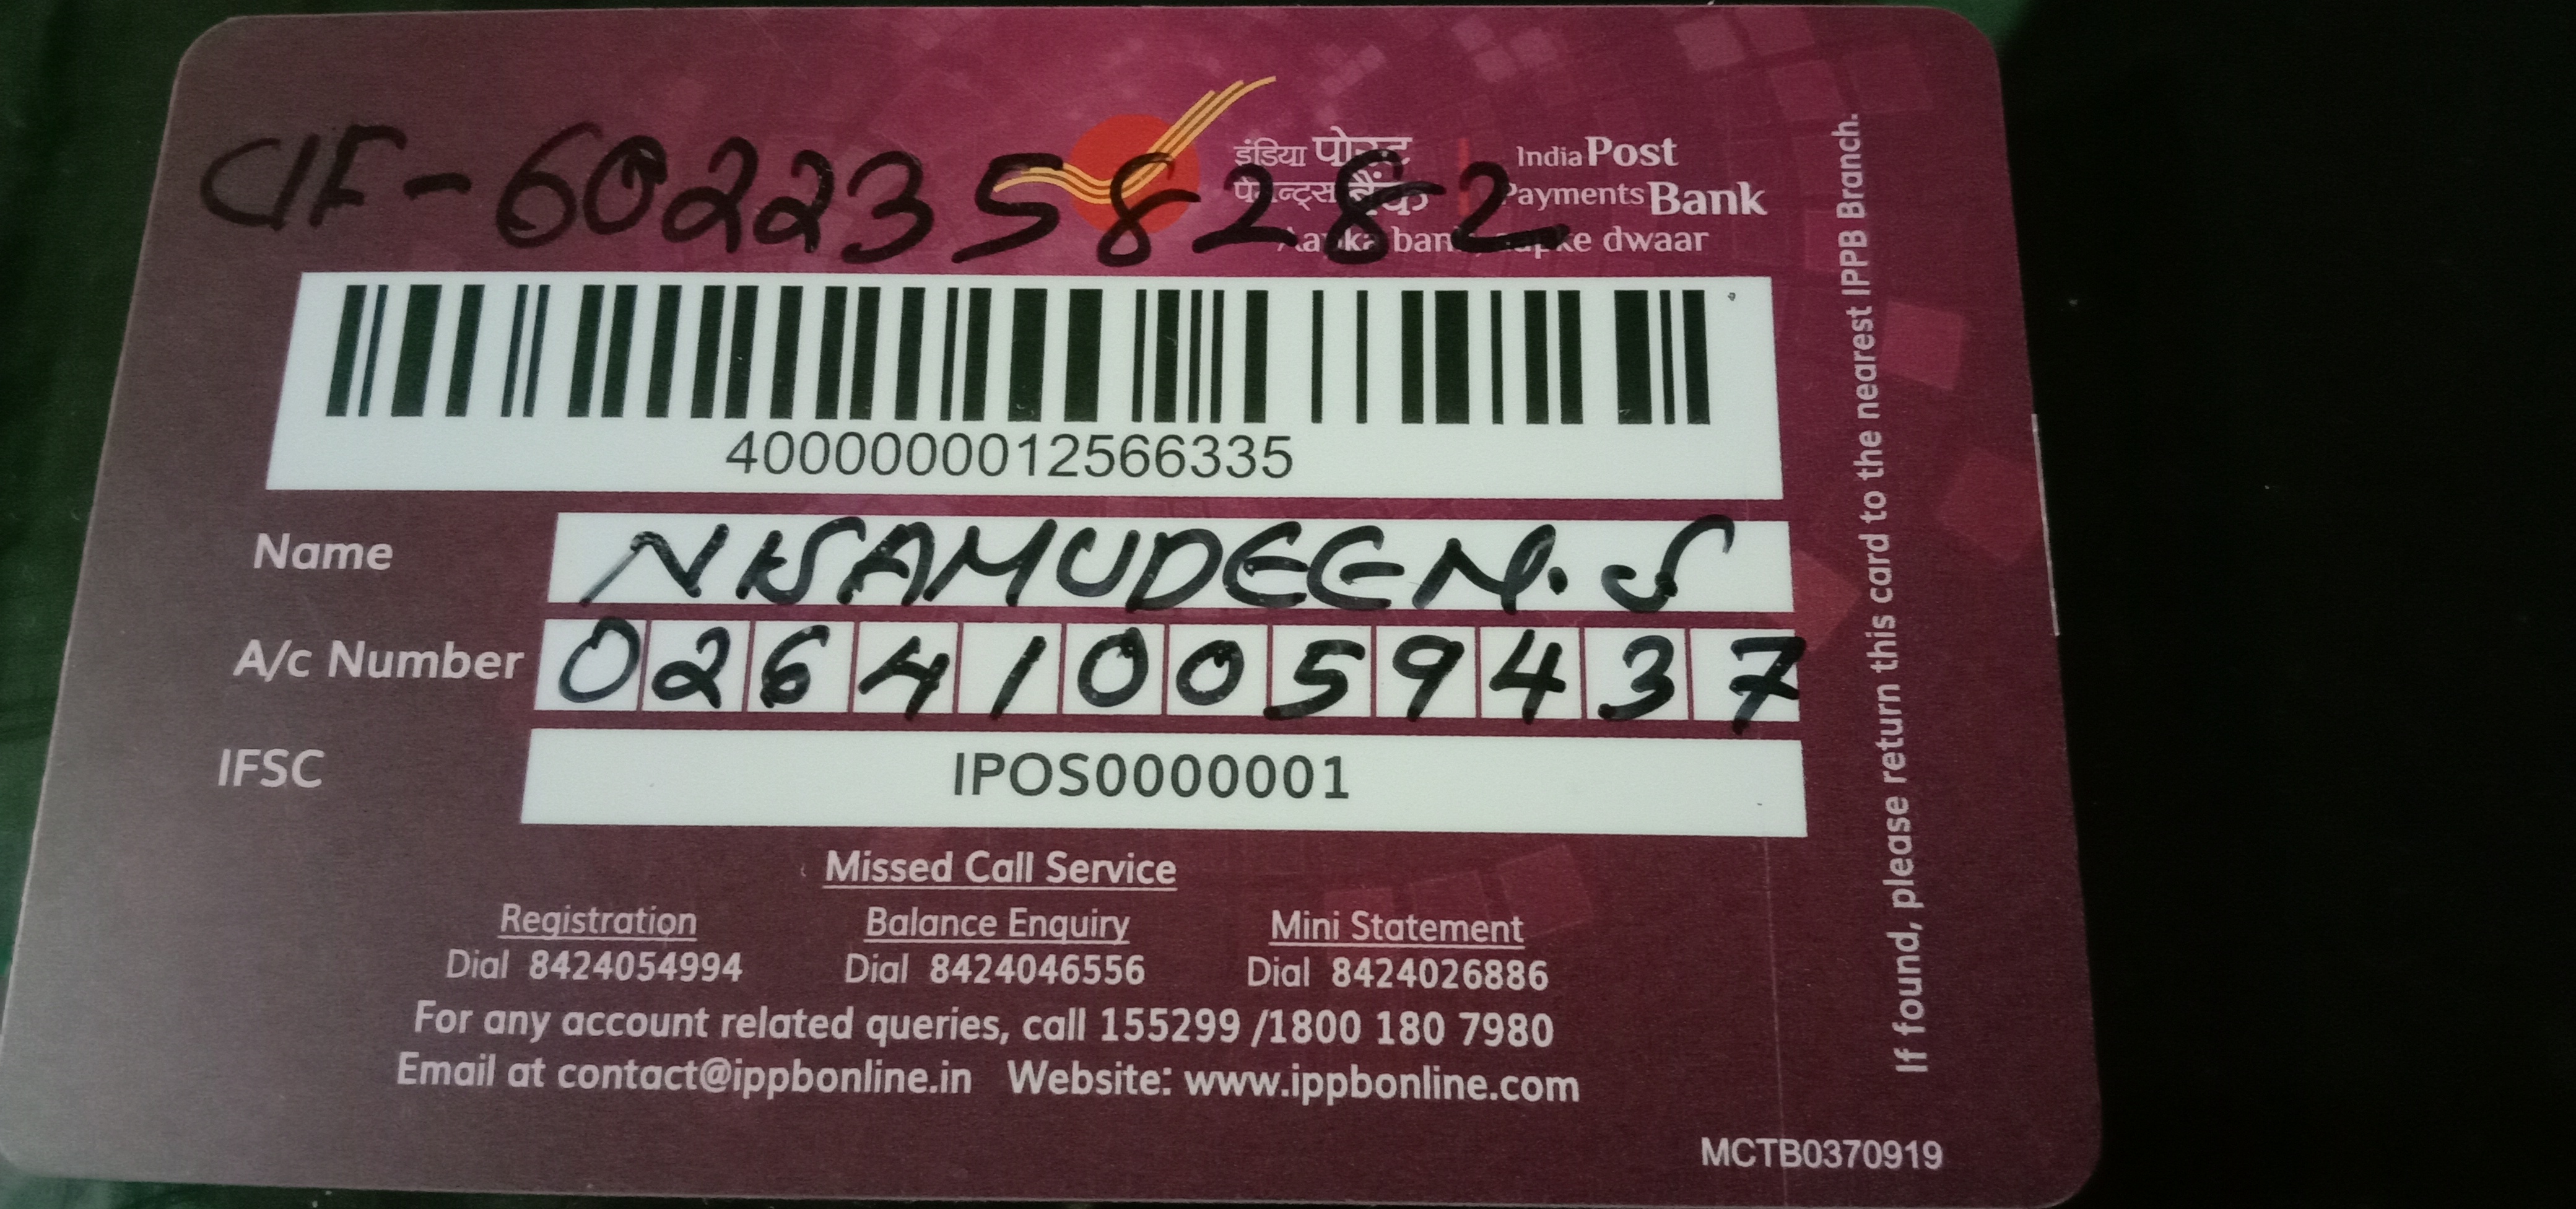 CIF-6022358282
इंडिया पोस्ट
पेमेन्ट्स बैंक
IndiaPost
PaymentsBank
Aapka bank, aapke dwaar
4000000012566335
Name NISAMUDEEN.S
A/c Number 026410059437
IFSC IPOS0000001
Missed Call Service
Registration Balance Enquiry Mini Statement
Dial 8424054994 Dial 8424046556 Dial 8424026886
For any account related queries, call 155299 /1800 180 7980
Email at contact@ippbonline.in Website: www.ippbonline.com
MCTB0370919
If found, please return this card to the nearest IPPB Branch.